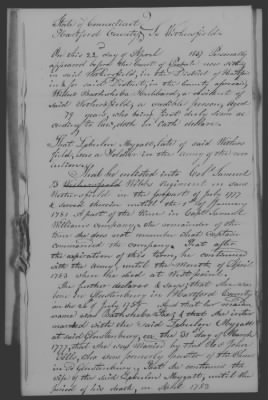 State of Connecticut
Hartford County Ss Wethersfield
On this 22 day of April 1837 Personally
appeared before the Court of Probate now sitting
in said Wethersfield, in the District of Hartford
in & for said District, in the County aforesaid,
Widow Bathsheba Hubbard, a resident of
said Wethersfield, a credible person, aged
79 years, who being first duly sworn ac
cording to law, doth on Oath declare
That Zebulon Mygatt, late of said Wethers
field, was a Soldier in the Army of the rev
olution
That he enlisted into Col Samuel
B Webbs Regiment in said
Wethersfield in the forepart of July 1777
& served therein until the 1st of January
1781. A part of the time in Capt Samuel W
Williams company, the remainder of the
time She does not remember what Captain
commanded the company. That after
the expiration of this term, he continued
with the Army until the month of April
1783 when he died at West point
She further declares & says that She was
born in Glastenbury in Hartford County
on the 26 of July 1757. And that her maiden
name was Bathsheba & that she inter
married with the said Zebulon Mygatt
at said Glastenbury, on the 31 day of March
1777, that She was Married by the Rev John
Eells, who was formerly Pastor of the Church
in Sd Glastenbury. That She continued the
wife of the said Zebulon Mygatt, until the
period of his death, in April 1783